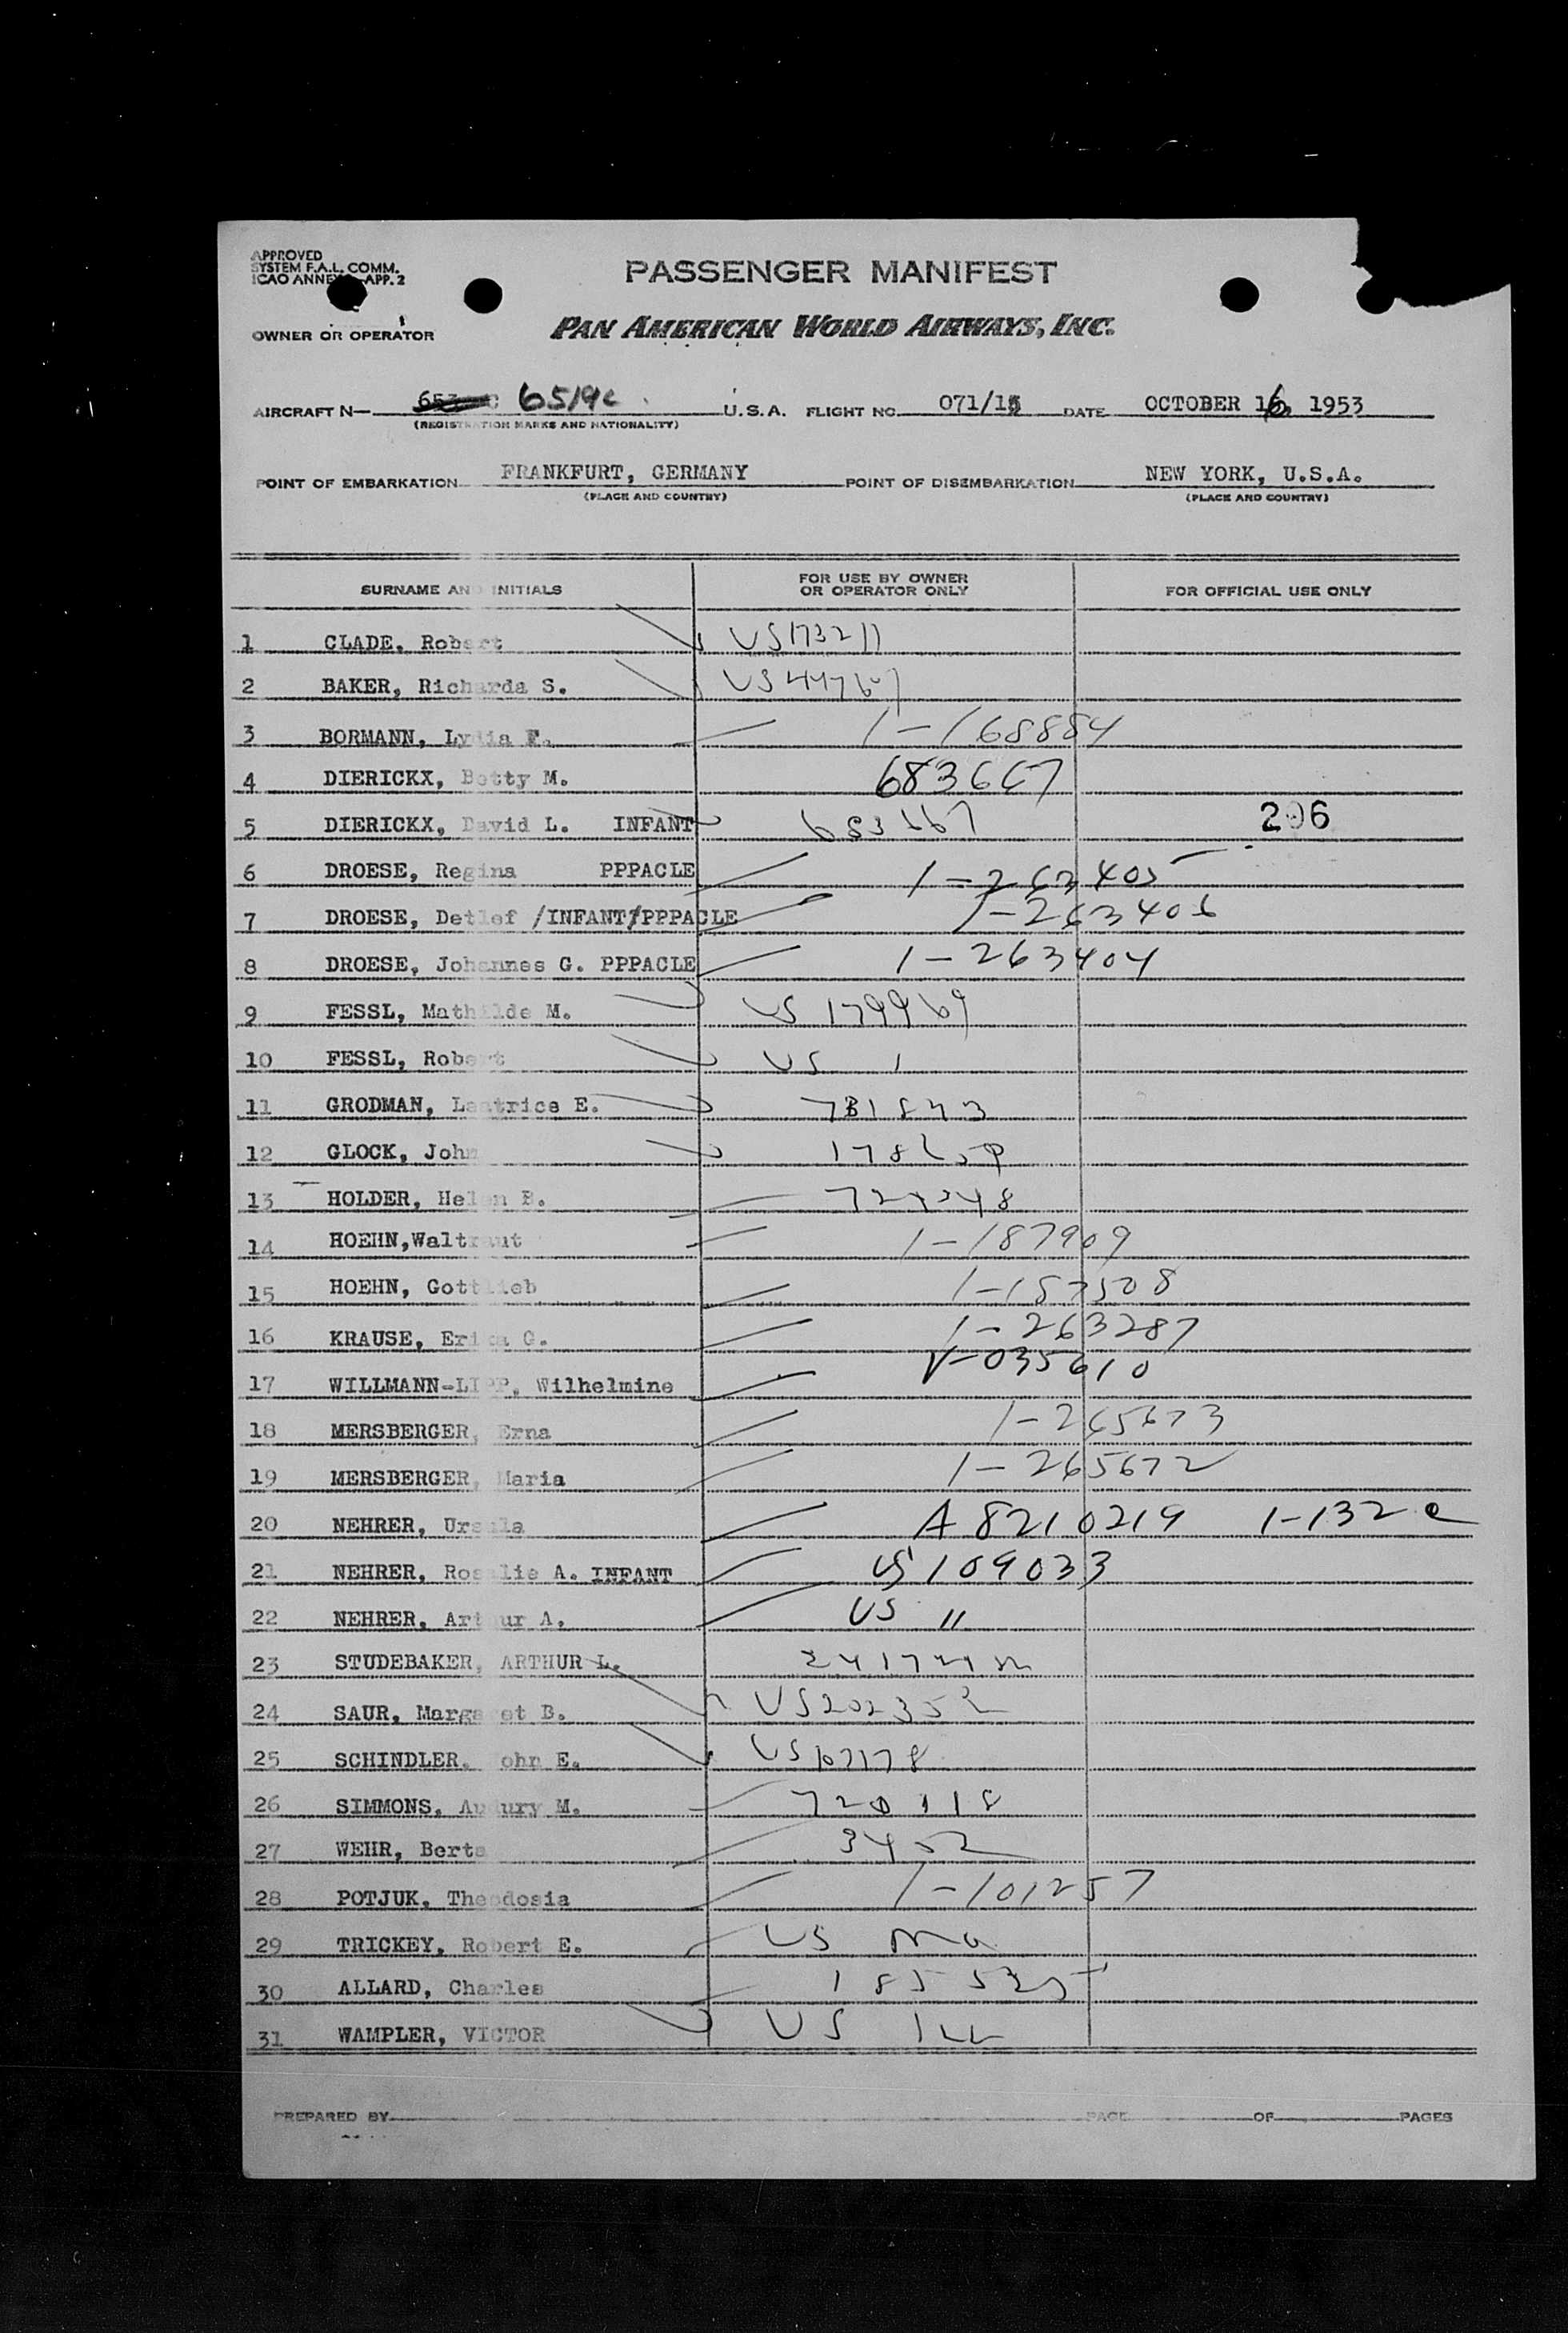 APPROVED
SYSTEM F.A.L. COMM.
ICAO ANNEX APP. 2
PASSENGER MANIFEST
OWNER OR OPERATOR PAN AMERICAN WORLD AIRWAYS, INC.
AIRCRAFT N— 6519C U.S.A. FLIGHT NO. 071/15 DATE OCTOBER 16, 1953
(REGISTRATION MARKS AND NATIONALITY)
POINT OF EMBARKATION FRANKFURT, GERMANY POINT OF DISEMBARKATION NEW YORK, U.S.A.
(PLACE AND COUNTRY) (PLACE AND COUNTRY)
SURNAME AND INITIALS FOR USE BY OWNER OR OPERATOR ONLY FOR OFFICIAL USE ONLY
1 CLADE, Robert US173211
2 BAKER, Richarda S.
3 BORMANN, Lydia F. 1-168884
4 DIERICKX, Betty M. 683667
5 DIERICKX, David L. INFANT 683667 206
6 DROESE, Regina PPPACLE 1-263405
7 DROESE, Detlef /INFANT/PPPACLE 1-263406
8 DROESE, Johannes G. PPPACLE 1-263404
9 FESSL, Mathilde M. US 179969
10 FESSL, Robert US
11 GRODMAN, Leatrice E. 731843
12 GLOCK, John
13 HOLDER, Helen B.
14 HOEHN,Waltraut 1-187909
15 HOEHN, Gottlieb
16 KRAUSE, Erika G. 1-263287
17 WILLMANN-LIPP, Wilhelmine V-035610
18 MERSBERGER, Erna 1-265673
19 MERSBERGER, Maria 1-265672
20 NEHRER, Ursula A 8210219 1-132
21 NEHRER, Rosalie A. INFANT US 109033
22 NEHRER, Arthur A. US "
23 STUDEBAKER, ARTHUR L.
24 SAUR, Margaret B. US202352
25 SCHINDLER, John E.
26 SIMMONS, Audury M. 720118
27 WEHR, Berta 3452
28 POTJUK, Theodosia 1-101257
29 TRICKEY, Robert E. US
30 ALLARD, Charles
31 WAMPLER, VICTOR US
PREPARED BY PAGE OF PAGES